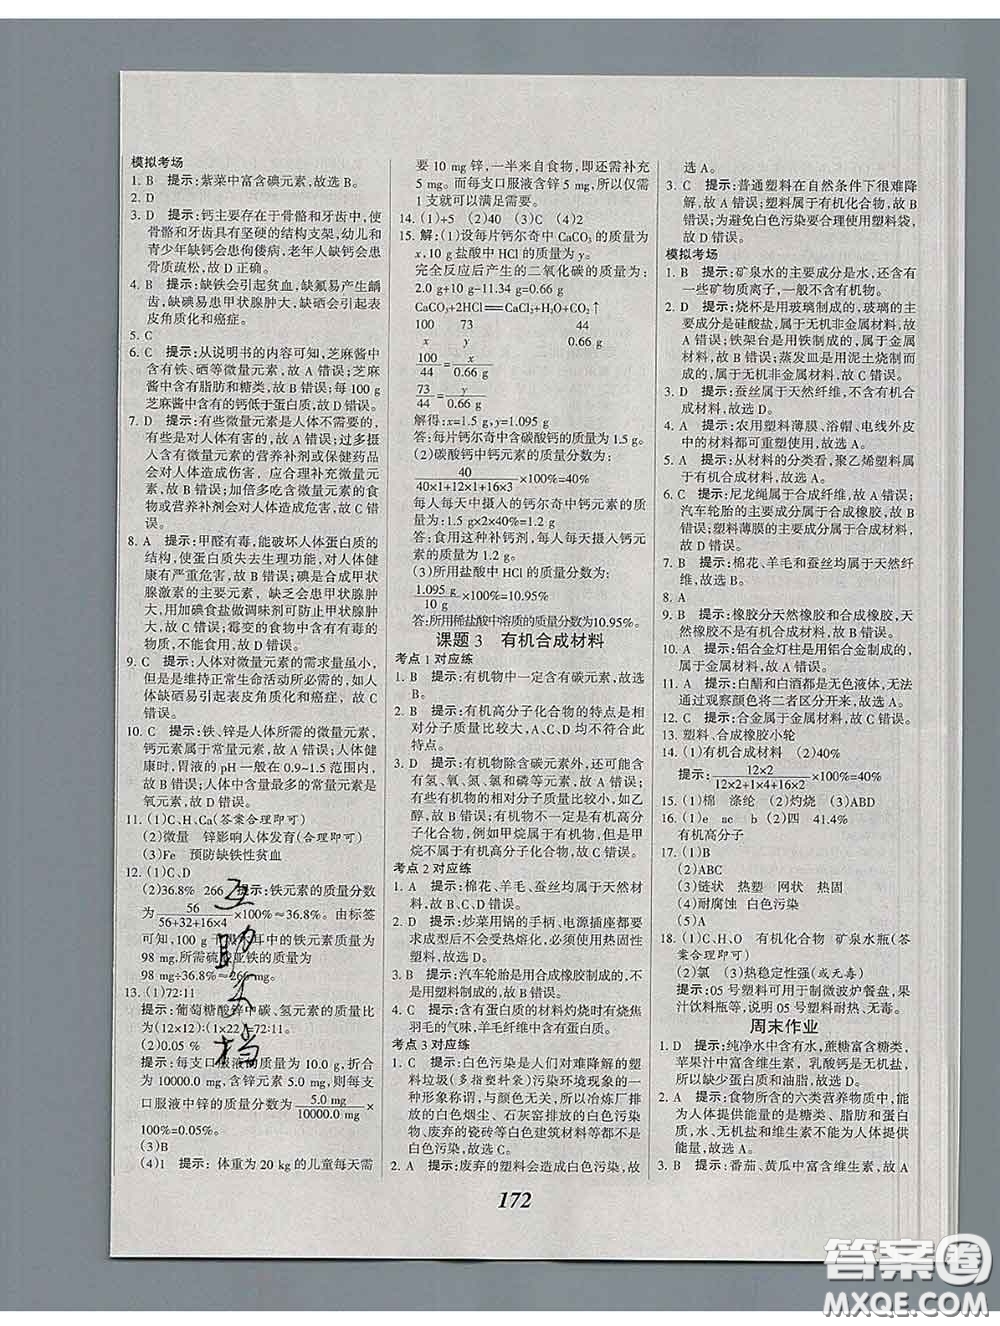 模拟考场
1. B 提示:紫菜中富含碘元素,故选 B。
2. D
3. D 提示:钙主要存在于骨骼和牙齿中,使
骨骼和牙齿具有坚硬的结构支架,幼儿和
青少年缺钙会患佝偻病,老年人缺钙会患
骨质疏松,故 D 正确。
4. B 提示:缺铁会引起贫血,缺氟易产生龋
齿,缺碘易患甲状腺肿大,缺硒会引起表
皮角质化和癌症。
5. C
6. C 提示:从说明书的内容可知,芝麻酱中
含有铁、硒等微量元素,故 A 错误;芝麻
酱中含有脂肪和糖类,故 B 错误;每 100 g
芝麻酱中含有的钙低于蛋白质,故 D 错误。
7. D 提示:有些微量元素是人体不需要的,
有些是对人体有害的,故 A 错误;过多摄
入含有微量元素的营养补剂或保健药品
会对人体造成伤害,应合理补充微量元
素,故 B 错误;加倍多吃含有微量元素的食
物或营养补剂会对人体造成危害,故 C 错
误。
8. A 提示:甲醛有毒,能破坏人体蛋白质的
结构,使蛋白质失去生理功能,对人体健
康有严重危害,故 B 错误;碘是合成甲状
腺激素的主要元素,缺乏会患甲状腺肿
大,用加碘食盐做调味剂可防止甲状腺肿
大,故 C 错误;霉变的食物中含有有毒的物
质,不能食用,故 D 错误。
9. C 提示:人体对微量元素的需求量虽小,
但是是维持正常生命活动所必需的,如人
体缺硒易引起表皮角质化和癌症,故 C 错
误。
10. C 提示:铁、锌是人体所需的微量元素,
钙元素属于常量元素,故 A 错误;人体健康
时,胃液的 pH 一般在 0.9~1.5 范围内,
故 B 错误;人体中含量最多的常量元素是
氧元素,故 D 错误。
11. (1)C、H、Ca(答案合理即可)
(2)微量 锌影响人体发育(合理即可)
(3)Fe 预防缺铁性贫血
12. (1)C、D
(2)36.8% 266 提示:铁元素的质量分数
为 56/(56+32+16×4) ×100%≈36.8%。由标签
可知,100 g 黑木耳中的铁元素质量为
98 mg,所需硫酸亚铁的质量为
98 mg÷36.8%≈266 mg。
13. (1)72:11
提示:葡萄糖酸锌中碳、氢元素的质量比为
(12×12):(1×22)=72:11。
(2)0.05 %
提示:每支口服液总质量为 10.0 g,折合
为 10000.0 mg,含锌元素 5.0 mg,则每支
口服液中锌的质量分数为 5.0 mg/10000.0 mg ×
100%=0.05%。
(3)B
(4)1 提示:体重为 20 kg 的儿童每天需
要 10 mg 锌,一半来自食物,即还需补充
5 mg。而每支口服液含锌 5 mg,所以仅
1 支就可以满足需要。
14. (1)+5 (2)40 (3)C (4)2
15. 解:(1)设每片钙尔奇中 CaCO₃ 的质量为
x,10 g 盐酸中 HCl 的质量为 y。
完全反应后产生的二氧化碳的质量为:
2.0 g+10 g-11.34 g=0.66 g
CaCO₃+2HCl══CaCl₂+H₂O+CO₂↑
100 73 44
x y 0.66 g
100/44=x/0.66 g
73/44=y/0.66 g
解得:x=1.5 g,y=1.095 g
答:每片钙尔奇中含碳酸钙的质量为 1.5 g。
(2)碳酸钙中钙元素的质量分数为:
40/(40×1+12×1+16×3) ×100%=40%
每人每天中摄入的钙尔奇中钙元素的质
量为:1.5 g×2×40%=1.2 g
答:食用这种补钙剂,每人每天摄入钙元
素的质量为 1.2 g。
(3)所用盐酸中 HCl 的质量分数为:
1.095 g/10 g ×100%=10.95%
答:所用稀盐酸中溶质的质量分数为 10.95%。
课题 3 有机合成材料
考点 1 对应练
1. B 提示:有机物中一定含有碳元素,故选
B。
2. B 提示:有机高分子化合物的特点是相
对分子质量比较大,A、C、D 均不符合此
特点。
3. D 提示:有机物除含碳元素外,还可能含
有氢、氧、氮、氯和磷等元素,故 A 错误;
有些有机物的相对分子质量比较小,如乙
醇,故 B 错误;有些有机物是共价
化合物,例如甲烷属于有机物,而
甲烷属于共价化合物,故 C 错误。
考点 2 对应练
1. A 提示:棉花、羊毛、蚕丝均属于天然材
料,故选 A。
2. D 提示:炒菜用锅的手柄、电源插座都要
求成型后不能受热软化,必须使用热固性
塑料。
3. B 提示:汽车轮胎是用合成橡胶制成的,
不是用塑料制成的,故选 B。
4. C 提示:含有蛋白质的材料灼烧时有烧焦
羽毛的气味,羊毛纤维中含有蛋白质。
考点 3 对应练
1. C 提示:白色污染是人们对难降解的塑
料垃圾(多指塑料袋)污染环境现象的一
种形象称谓,与颜色无关,所以冶炼厂排
放的白色烟尘、石灰窑排放的白色粉
物、废弃的瓷砖等白色建筑材料等都不是
白色污染,故选 C。
2. A 提示:废弃的塑料会造成白色污染,故
选 A。
3. C 提示:普通塑料在自然条件下很难降
解,故 A 错误;塑料属于有机化合物,故 B
错误;为避免白色污染要合理使用塑料袋,
故 D 错误。
模拟考场
1. B 提示:矿泉水的主要成分是水,还含有
一些矿物质离子,一般不含有机物。
2. D 提示:烧杯是用玻璃制成的,玻璃的主
要成分是硅酸盐,属于无机非金属材料,故
A 错误;铁架台是用铁制成的,属于金属
材料,故 B 错误;蒸发皿是用泥土烧制而
成的,属于无机非金属材料,故 C 错误。
3. D 提示:蚕丝属于天然纤维,不含有机合
成材料,故选 D。
4. A 提示:农用塑料薄膜、浴帽、电线外皮
中的材料都可重塑加工,故选 A。
5. A 提示:从材料的分类看,聚乙烯塑料属
于有机合成材料,故选 A。
6. C 提示:尼龙绳属于合成纤维,故 A 错误;
汽车轮胎的主要成分属于合成橡胶,故 B
错误;塑料薄膜的主要成分属于合成材料,
故 D 错误。
7. A 提示:棉花、羊毛和蚕丝均属于天然纤
维,故选 A。
8. A
9. B 提示:橡胶分天然橡胶和合成橡胶,天
然橡胶不属于合成材料,故 B 错误。
10. A 提示:铝合金灯柱是用铝合金制成的,
属于金属材料,故选 A。
11. A 提示:白醋和白酒都是无色液体,无法
通过观察颜色将二者区分开来,故选 A。
12. C 提示:合金属于金属材料,故 C 错误。
13. 塑料、合成橡胶小轮
14. (1)有机合成材料 (2)40%
提示: 12×2/(12×2+1×4+16×2) ×100%=40%
15. (1)棉 涤纶 (2)灼烧 (3)ABD
16. (1)e ae b (2)四 41.4%
有机高分子
17. (1)B
(2)ABC
(3)链状 热塑 网状 热固
(4)耐腐蚀 白色污染
(5)A
18. (1)C、H、O 有机化合物 矿泉水瓶(答
案合理即可)
(2)氯 (3)热稳定性强(或无毒)
提示:05 号塑料可用于制微波炉餐盘,果
汁饮料瓶等,说明 05 号塑料耐热、无毒。
周末作业
1. D 提示:纯净水中含有水,蔗糖富含糖类,
苹果汁中富含维生素,乳酸钙是无机盐,
所以缺少蛋白质和油脂,故选 D。
2. A 提示:食物所含的六类营养物质中,能
为人体提供能量的是糖类、脂肪和蛋白
质,水、无机盐和维生素不能为人体提供
能量,故选 A。
3. B 提示:番茄、黄瓜中富含维生素,故 A
172
互
助
文
档
答案圈
MXQE.COM